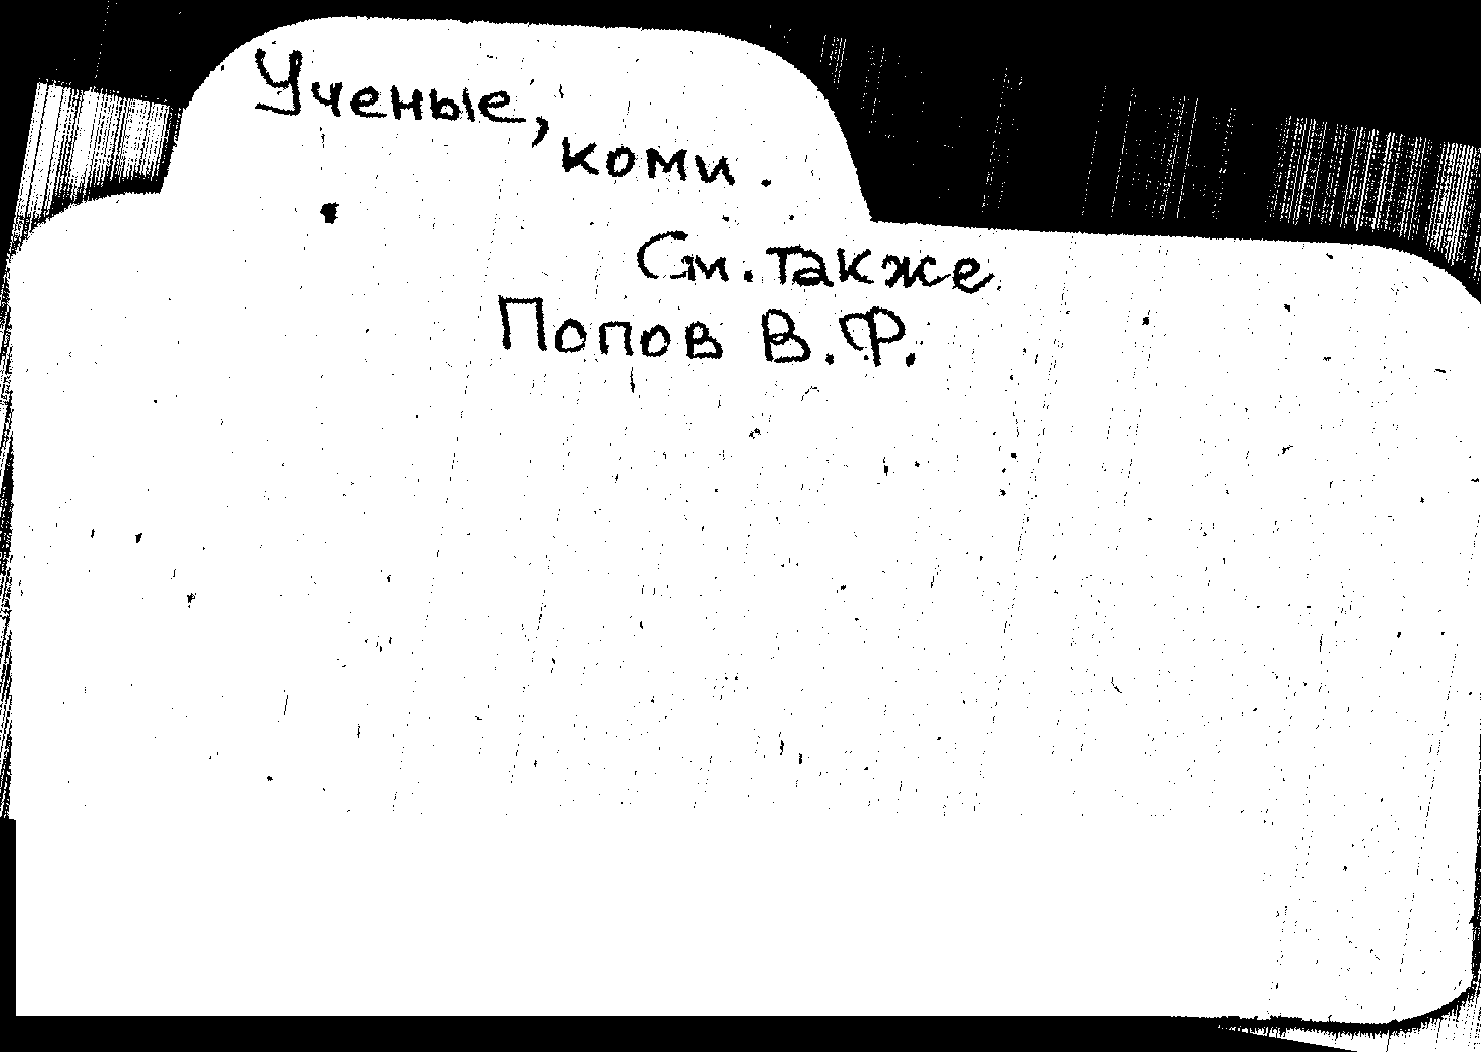 Ученые,
коми.
См. также
Попов В.Ф.